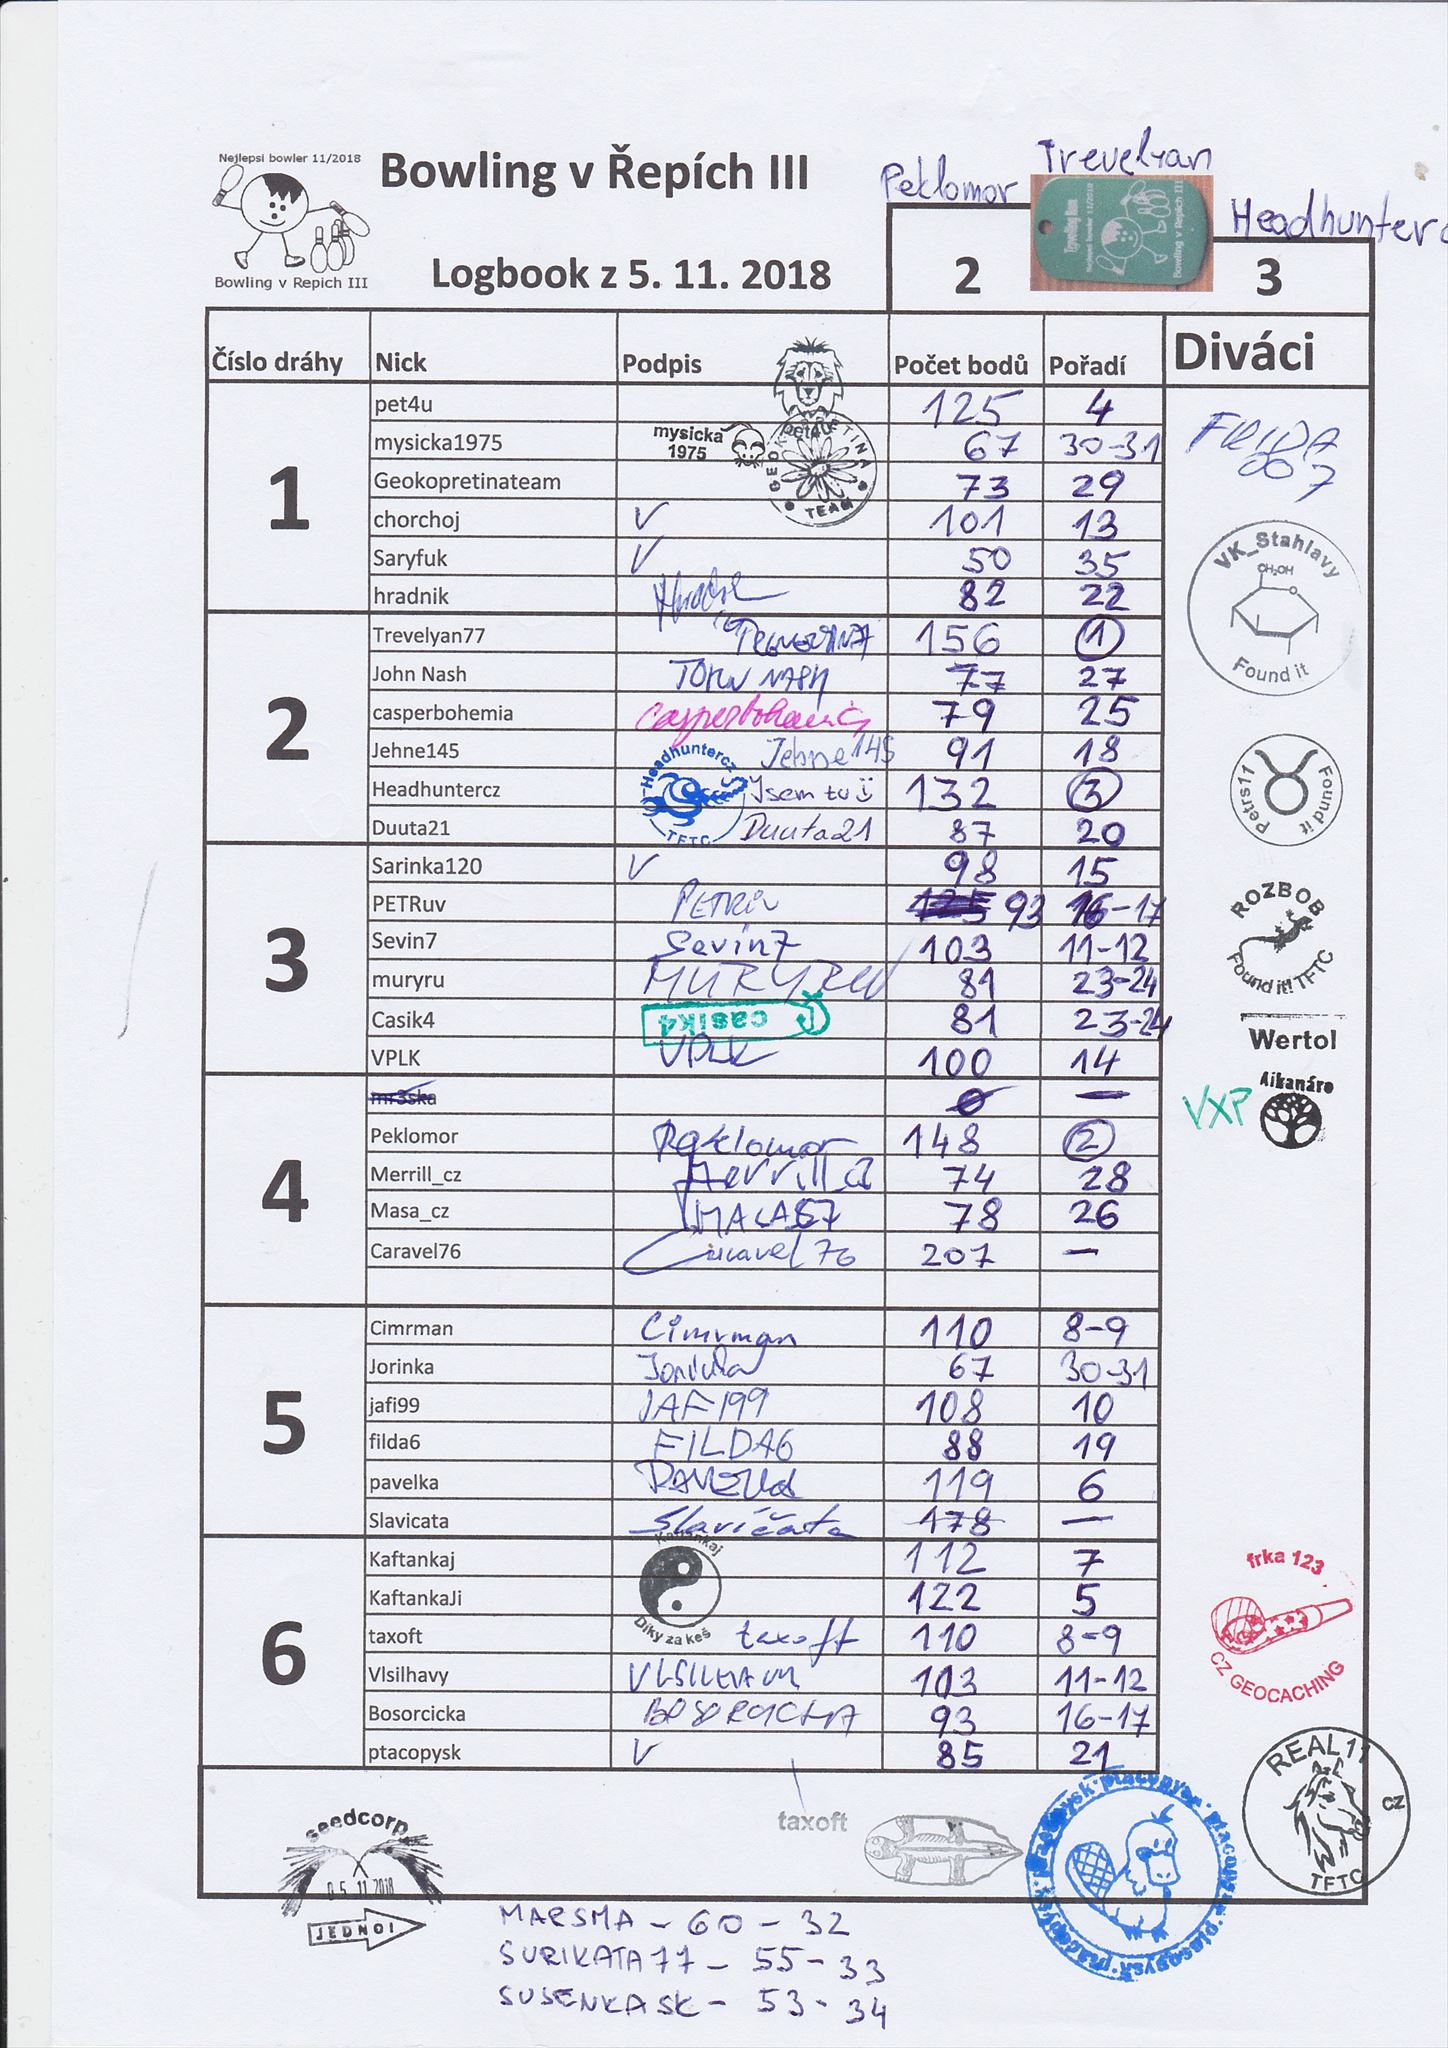 Nejlepsi bowler 11/2018
Bowling v Repich III
Bowling v Řepích III
Logbook z 5. 11. 2018
Peklomor
Trevelyan
Headhunterc
2
3
Nejlepsi bowler 11/2018
Bowling v Repich III
Číslo dráhy Nick Podpis Počet bodů Pořadí Diváci
1
pet4u pet4u 125 4
mysicka1975 mysicka 1975 67 30-31
Geokopretinateam GEOKOPRETINA TEAM 73 29
chorchoj V 101 13
Saryfuk V 50 35
hradnik 82 22
2
Trevelyan77 156 1
John Nash JOHN NASH 77 27
casperbohemia casperbohemia 79 25
Jehne145 Jehne145 91 18
Headhuntercz Headhuntercz TFTC Jsem tu 132 3
Duuta21 Duuta21 87 20
3
Sarinka120 V 98 15
PETRuv 125 93 16-17
Sevin7 Sevin7 103 11-12
muryru MURYRU 81 23-24
Casik4 casik4 81 23-24
VPLK VPLK 100 14
4
mr3ska 0 —
Peklomor Peklomor 148 2
Merrill_cz Merrill_cz 74 28
Masa_cz 78 26
Caravel76 Caravel76 207 —
5
Cimrman Cimrman 110 8-9
Jorinka Jorinka 67 30-31
jafi99 JAFI99 108 10
filda6 FILDA6 88 19
pavelka PAVELKA 119 6
Slavicata Slavíčata 178 —
6
Kaftankaj Kaftankaj 112 7
KaftankaJi Díky za keš 122 5
taxoft taxoft 110 8-9
Vlsilhavy VLSILHAVY 103 11-12
Bosorcicka 93 16-17
ptacopysk V 85 21
FRIDA 007
VK_Stahlavy
CH₂OH
O
Found it
Petrs11 Found it
ROZBOB
Found it! TFTC
Wertol
VXP
Aikanáro
frka 123
CZ GEOCACHING
REAL11
CZ
TFTC
seedcorp
05 11 2018
JEDNO!
taxoft
ptacopysk · ptacopysk · ptacopysk · ptacopysk
MARSMA - 60 - 32
SURIKATA77 - 55 - 33
SUSENKASK - 53 - 34